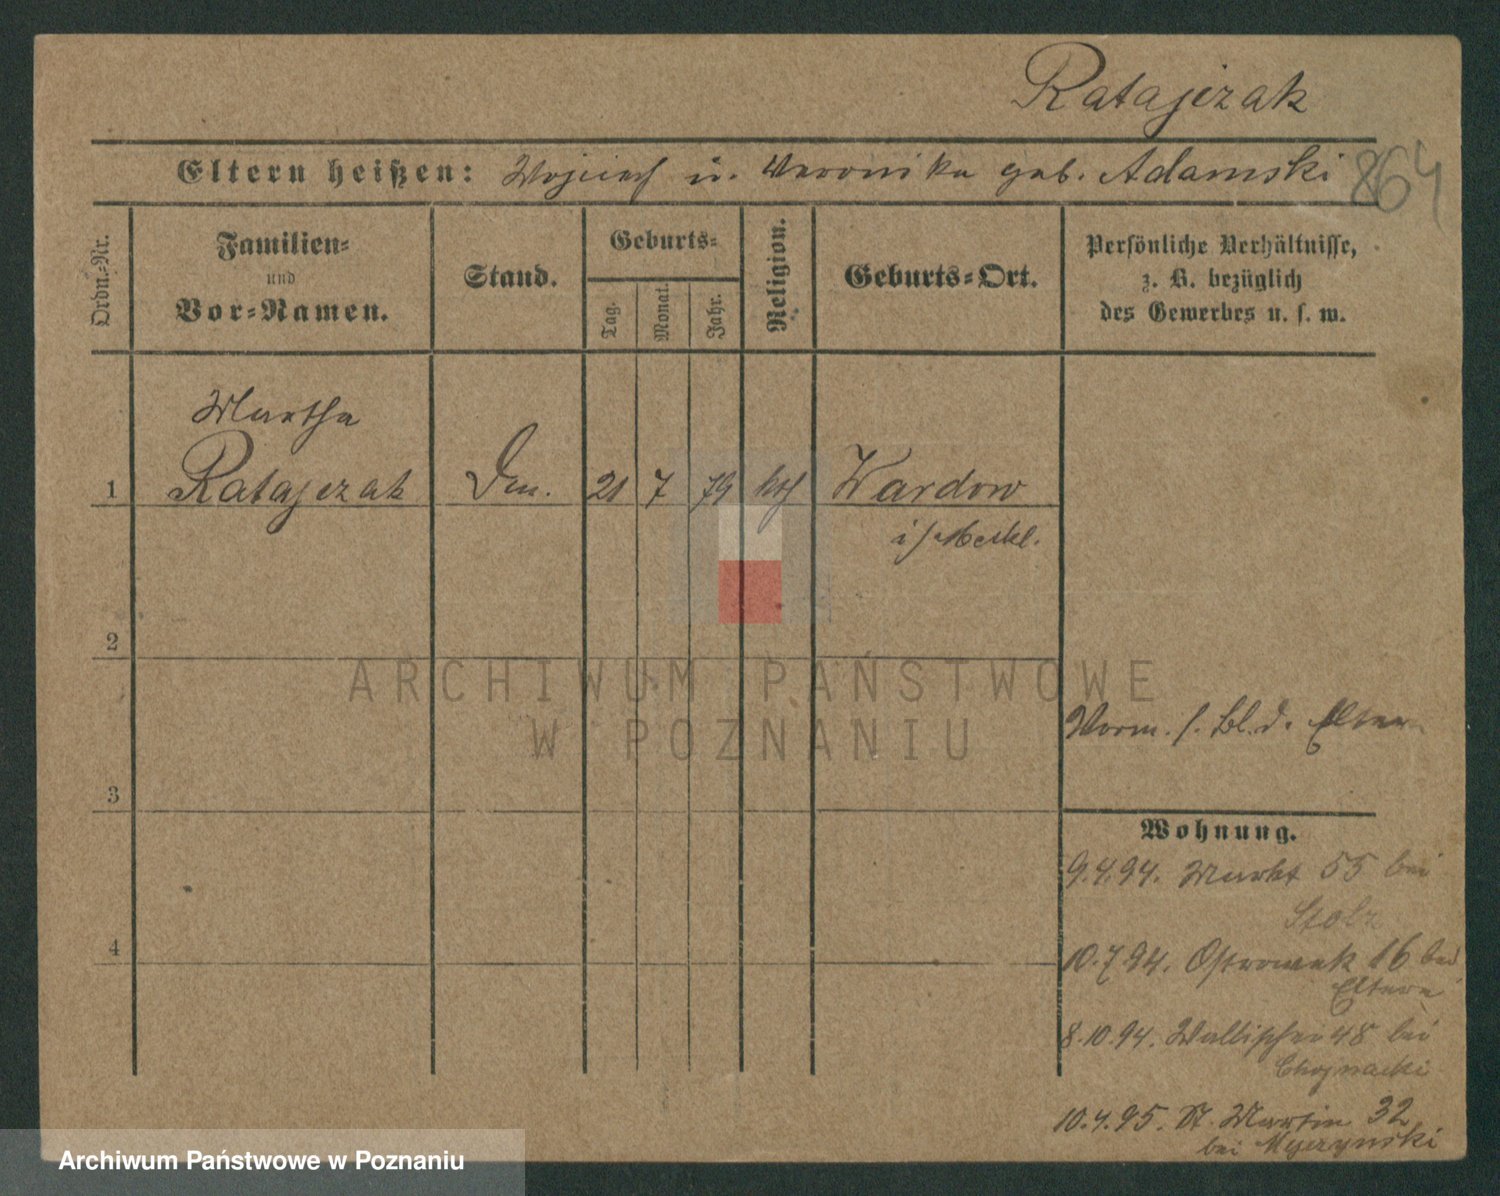 Ratajczak
Eltern heißen: Wojciech u. Veronika geb. Adamski
864
Ordn.-Nr.
Familien-
und
Vor-Namen.
Stand.
Geburts-
Tag.
Monat.
Jahr.
Religion.
Geburts-Ort.
Persönliche Verhältnisse,
z. B. bezüglich
des Gewerbes u. s. w.
Martha
1 Ratajczak 21 7 79 kth Wardow
i/Meckl.
2
ARCHIWUM PAŃSTWOWE
W POZNANIU
Vorm. s. Bl. d. Eltern
3
Wohnung.
9.4.94. Markt 55 bei
Stolz
4
10.7.94. Ostrowek 16 bei
Eltern
8.10.94. Wallischei 48 bei
Chojnacki
10.4.95. St. Martin 32
bei
Archiwum Państwowe w Poznaniu